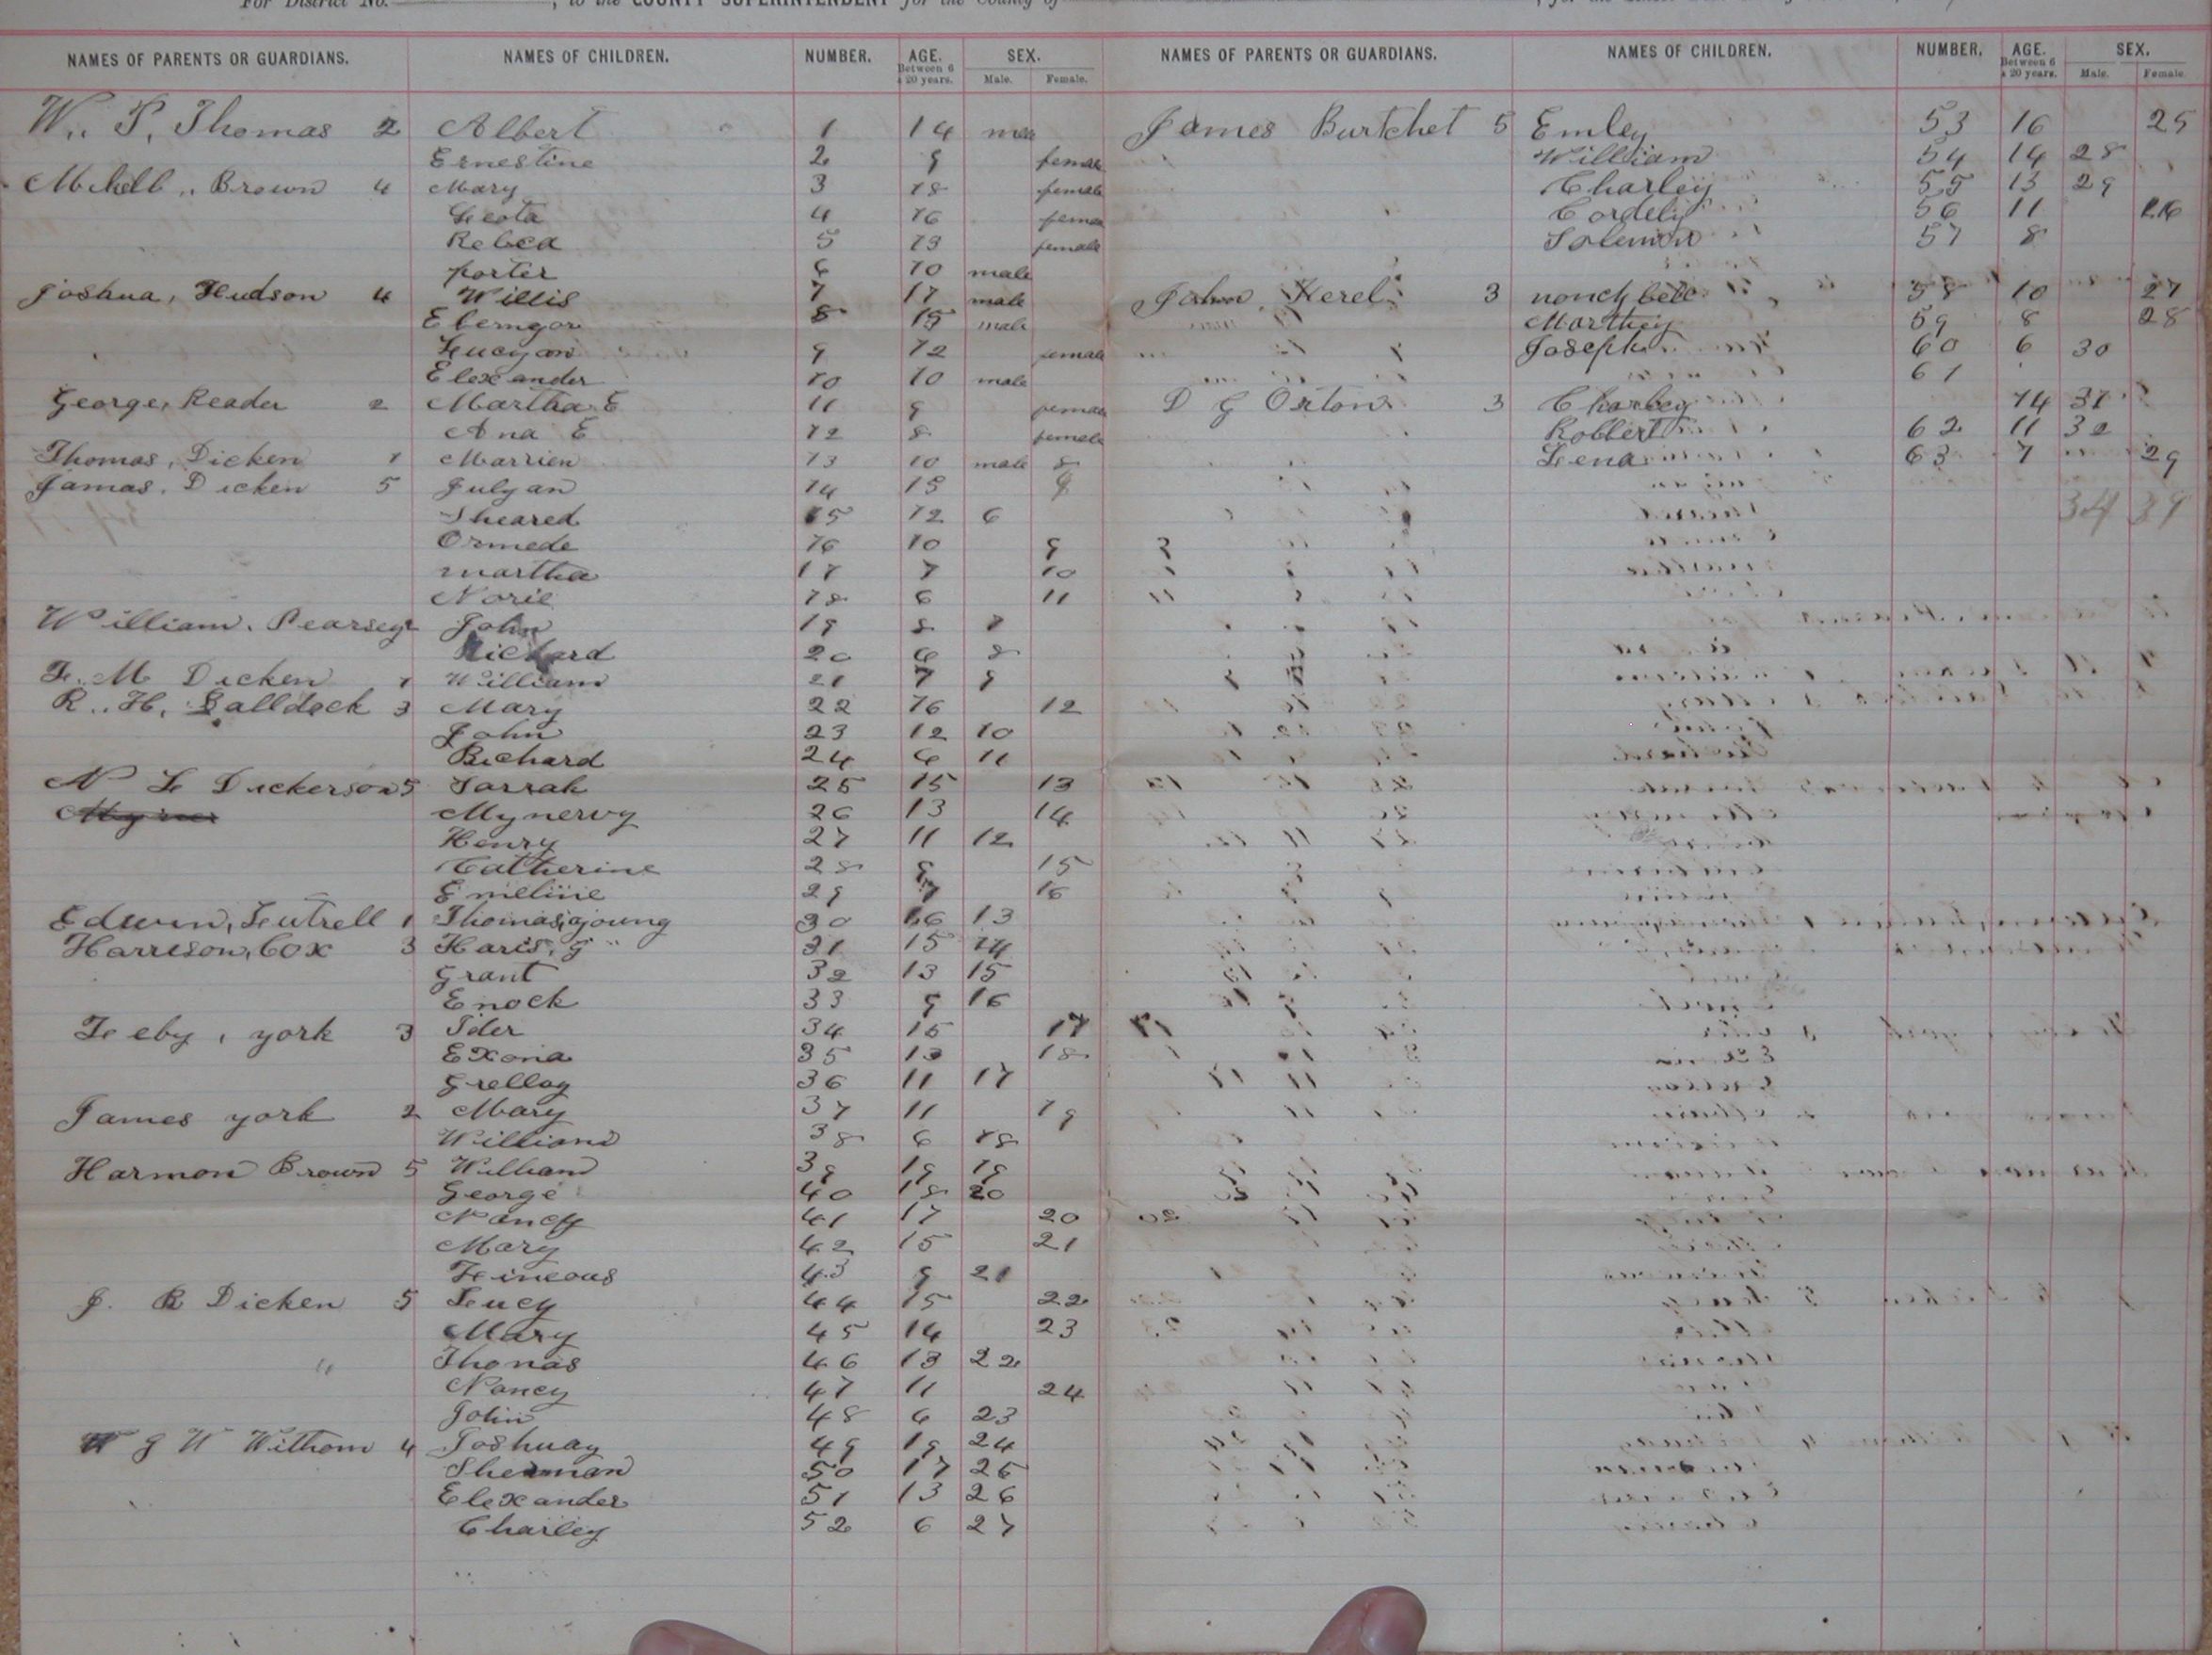 For District No. , to the COUNTY SUPERINTENDENT for the County of
NAMES OF PARENTS OR GUARDIANS. NAMES OF CHILDREN. NUMBER. AGE. Between 6 & 20 years. SEX. Male. Female.
W.. P. Thomas 2 Albert 1 14 male
Ernestine 2 9 female
Mchell .. Brown 4 Mary 3 18 female
Leota 4 16 female
Rebca 5 13 female
porter 6 10 male
Joshua, Hudson 4 Willis 7 17 male
Ebemgor 8 15 male
Lucyan 9 12 female
Elexander 10 10 male
George, Reader 2 Martha E 11 9 female
Ana E 12 8 female
Thomas, Dicken 1 Marrien 13 10 male 8
Jamas, Dicken 5 Julyan 14 15 8
Sheared 15 12 6
Ormede 16 10 9
martha 17 7 10
Norie 18 6 11
William. Pearsey 2 John 19 8 7
Richard 20 6 8
F. M Dicken 1 William 21 7 9
R.. H. Galldock 3 Mary 22 16 12
John 23 12 10
Richard 24 6 11
N L Dickerson 5 Sarrah 25 15 13
Mynervy 26 13 14
Henry 27 11 12
Catherine 28 9 15
Emeline 29 7 16
Edwin, Lutrell 1 Thomas, young 30 16 13
Harrison, Cox 3 Haris, G 31 15 14
Grant 32 13 15
Enock 33 9 16
Leby, york 3 Ider 34 15 17
Exona 35 13 18
Grellay 36 11 17
James york 2 Mary 37 11 19
William 38 6 18
Harmon Brown 5 William 39 19 19
George 40 18 20
Nancy 41 17 20
Mary 42 15 21
Lineous 43 9 21
J. R Dicken 5 Lucy 44 15 22
Mary 45 14 23
Thomas 46 13 22
Nancy 47 11 24
John 48 6 23
W G W Withom 4 Joshuay 49 19 24
Sherman 50 17 25
Elexander 51 13 26
Charley 52 6 27
NAMES OF PARENTS OR GUARDIANS. NAMES OF CHILDREN. NUMBER. AGE. Between 6 & 20 years. SEX. Male. Female.
James Burtchet 5 Emley 53 16 25
William 54 14 28
Charley 55 13 29
Cordely 56 11 26
Solemon 57 8
John, Kerel 3 nonckbell 58 10 27
Marthey 59 8 28
Joseph 60 6 30
61
D G Orton 3 Charley 14 31
Robbert 62 11 32
Lena 63 7 29
34 39